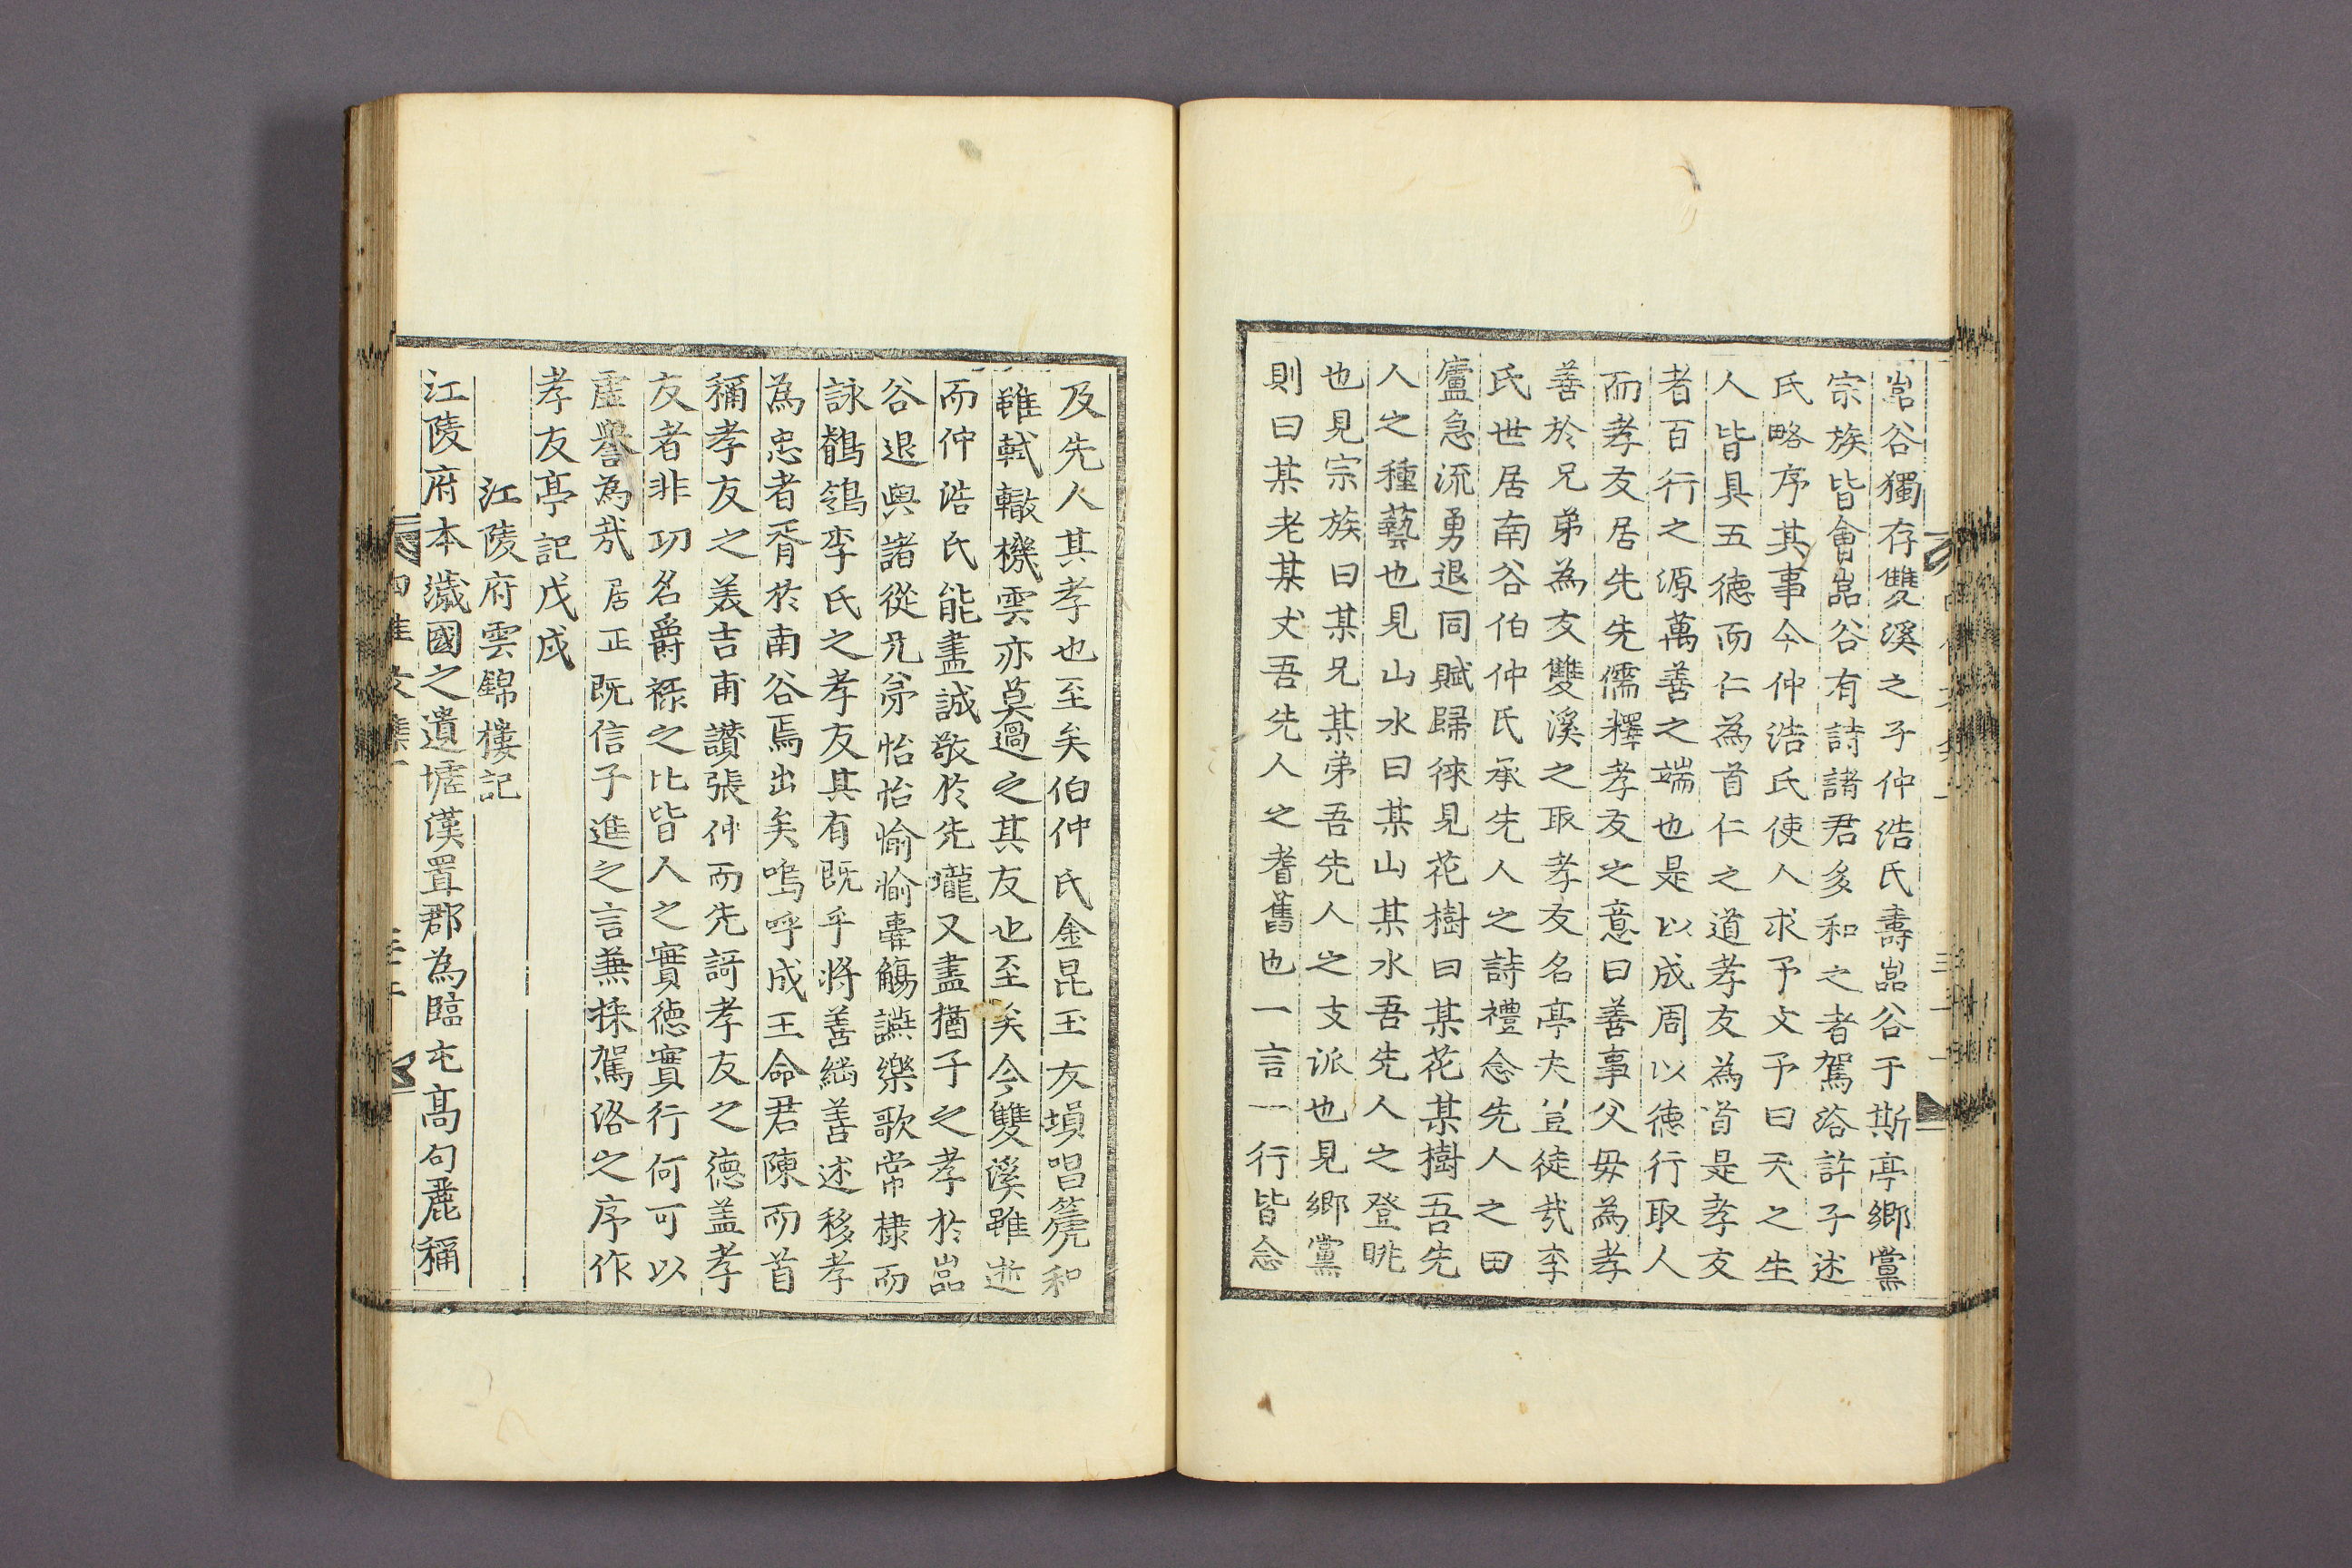 嵓谷獨存雙溪之子仲浩氏壽嵓谷于斯亭鄕黨
宗族皆會嵓谷有詩諸君多和之者駕洛許子述
氏略序其事今仲浩氏使人求予文予曰天之生
人皆具五德而仁為首仁之道孝友為首是孝友
者百行之源萬善之端也是以成周以德行取人
而孝友居先先儒釋孝友之意曰善事父毋為孝
善於兄弟為友雙溪之取孝友名亭夫豈徒㢤李
氏世居南谷伯仲氏承先人之詩禮念先人之田
廬急流勇退同賦歸徠見花樹曰某花某樹吾先
人之種藝也見山水曰某山某水吾先人之登眺
也見宗族曰某兄某弟吾先人之支派也見鄕黨
則曰某老某丈吾先人之耆舊也一言一行皆念
及先人其孝也至矣伯仲氏金昆玉友塤唱箎和
雖軾轍機雲亦莫過之其友也至矣今雙溪雖逝
而仲浩氏能盡誠敬於先壠又盡猶子之孝於嵓
谷退與諸從兄弟怡怡愉愉壽觴讌樂歌常棣而
詠鶺鴒李氏之孝友其有旣乎將善繼善述移孝
為忠者胥於南谷焉出矣嗚呼成王命君陳而首
稱孝友之美吉甫讚張仲而先謌孝友之德盖孝
友者非功名爵祿之比皆人之實德實行何可以
虛譽為㢤居正旣信子進之言兼採駕洛之序作
孝友亭記戊戌
江陵府雲錦樓記
江陵府本濊國之遺墟漢置郡為臨屯高句麗稱
四佳文集